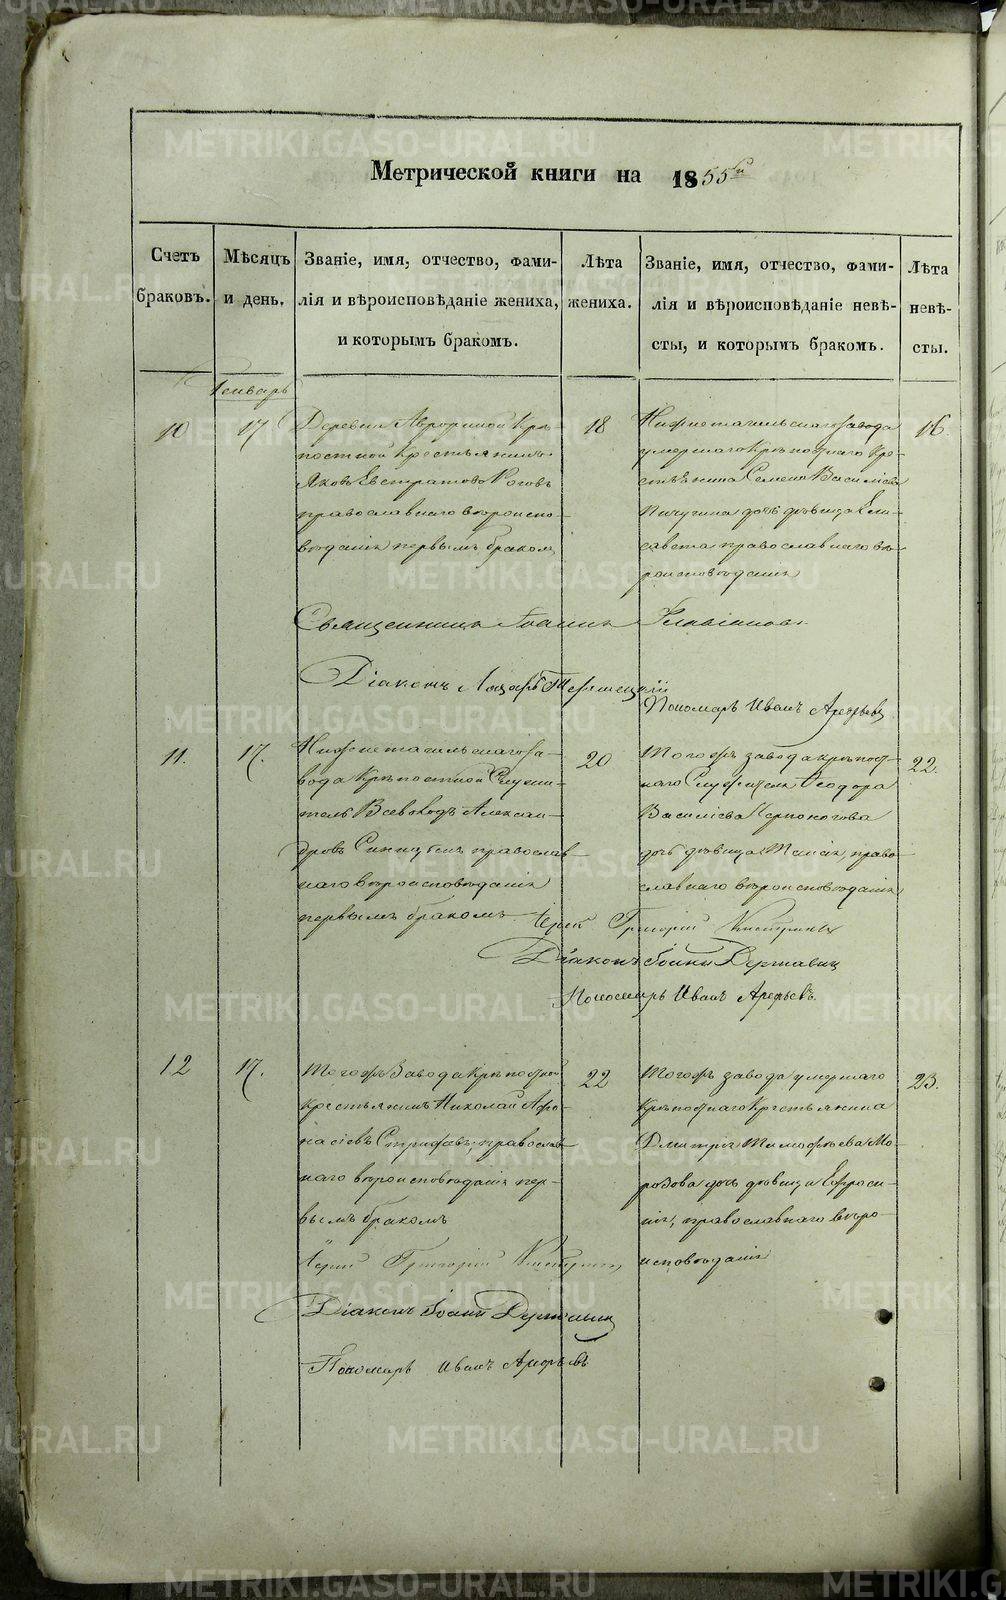 METRIKI.GASO-URAL.RU
Метрической книги на 1855й
Счетъ браковъ.
Мѣсяцъ и день.
Званіе, имя, отчество, фами-
лія и вѣроисповѣданіе жениха,
и которымъ бракомъ.
Лѣта жениха.
Званіе, имя, отчество, фами-
лія и вѣроисповѣданіе невѣ-
сты, и которымъ бракомъ.
Лѣта невѣ-
сты.
Январь
10
17
Деревни Кре-
постной Крестьянинъ
Яковъ Евстратовъ Роговъ
православнаго вѣроиспо-
вѣданія первымъ бракомъ
18
Нижнетагильскаго завода
умершаго Крѣпостнаго Кре-
стьянина Семена Васильева
Пичугина дочь дѣвица Ели-
савета православнаго вѣ-
роисповѣданія
16
Священникъ Іоаннъ Флавіановъ
Діаконъ Лазарь
Пономарь Иванъ Арефьевъ
11.
17.
Нижнетагильскаго За-
вода Крѣпостной Служи-
тель Всеволодъ Алексан-
дровъ православ-
наго вѣроисповѣданія
первымъ бракомъ
20
Тогожъ завода крѣпост-
наго Служителя Ѳеодора
Васильева Черноногова
дочь дѣвица Таисія право-
славнаго вѣроисповѣданія
22.
Іерей Григорій
Діаконъ Іоаннъ Державинъ
Пономарь Иванъ Арефьевъ
12
17.
Тогожъ Завода Крѣпостной
крестьянинъ Николай Афо-
насіевъ православ-
наго вѣроисповѣданія пер-
вымъ бракомъ
22
Тогожъ завода умершаго
Крѣпостнаго Крестьянина
Дмитрія Тимофѣева Мо-
розова дочь дѣвица Ефроси-
нія, православнаго вѣро-
исповѣданія
23.
Іерей Григорій
Діаконъ Іоаннъ Державинъ
Пономарь Иванъ Арефьевъ